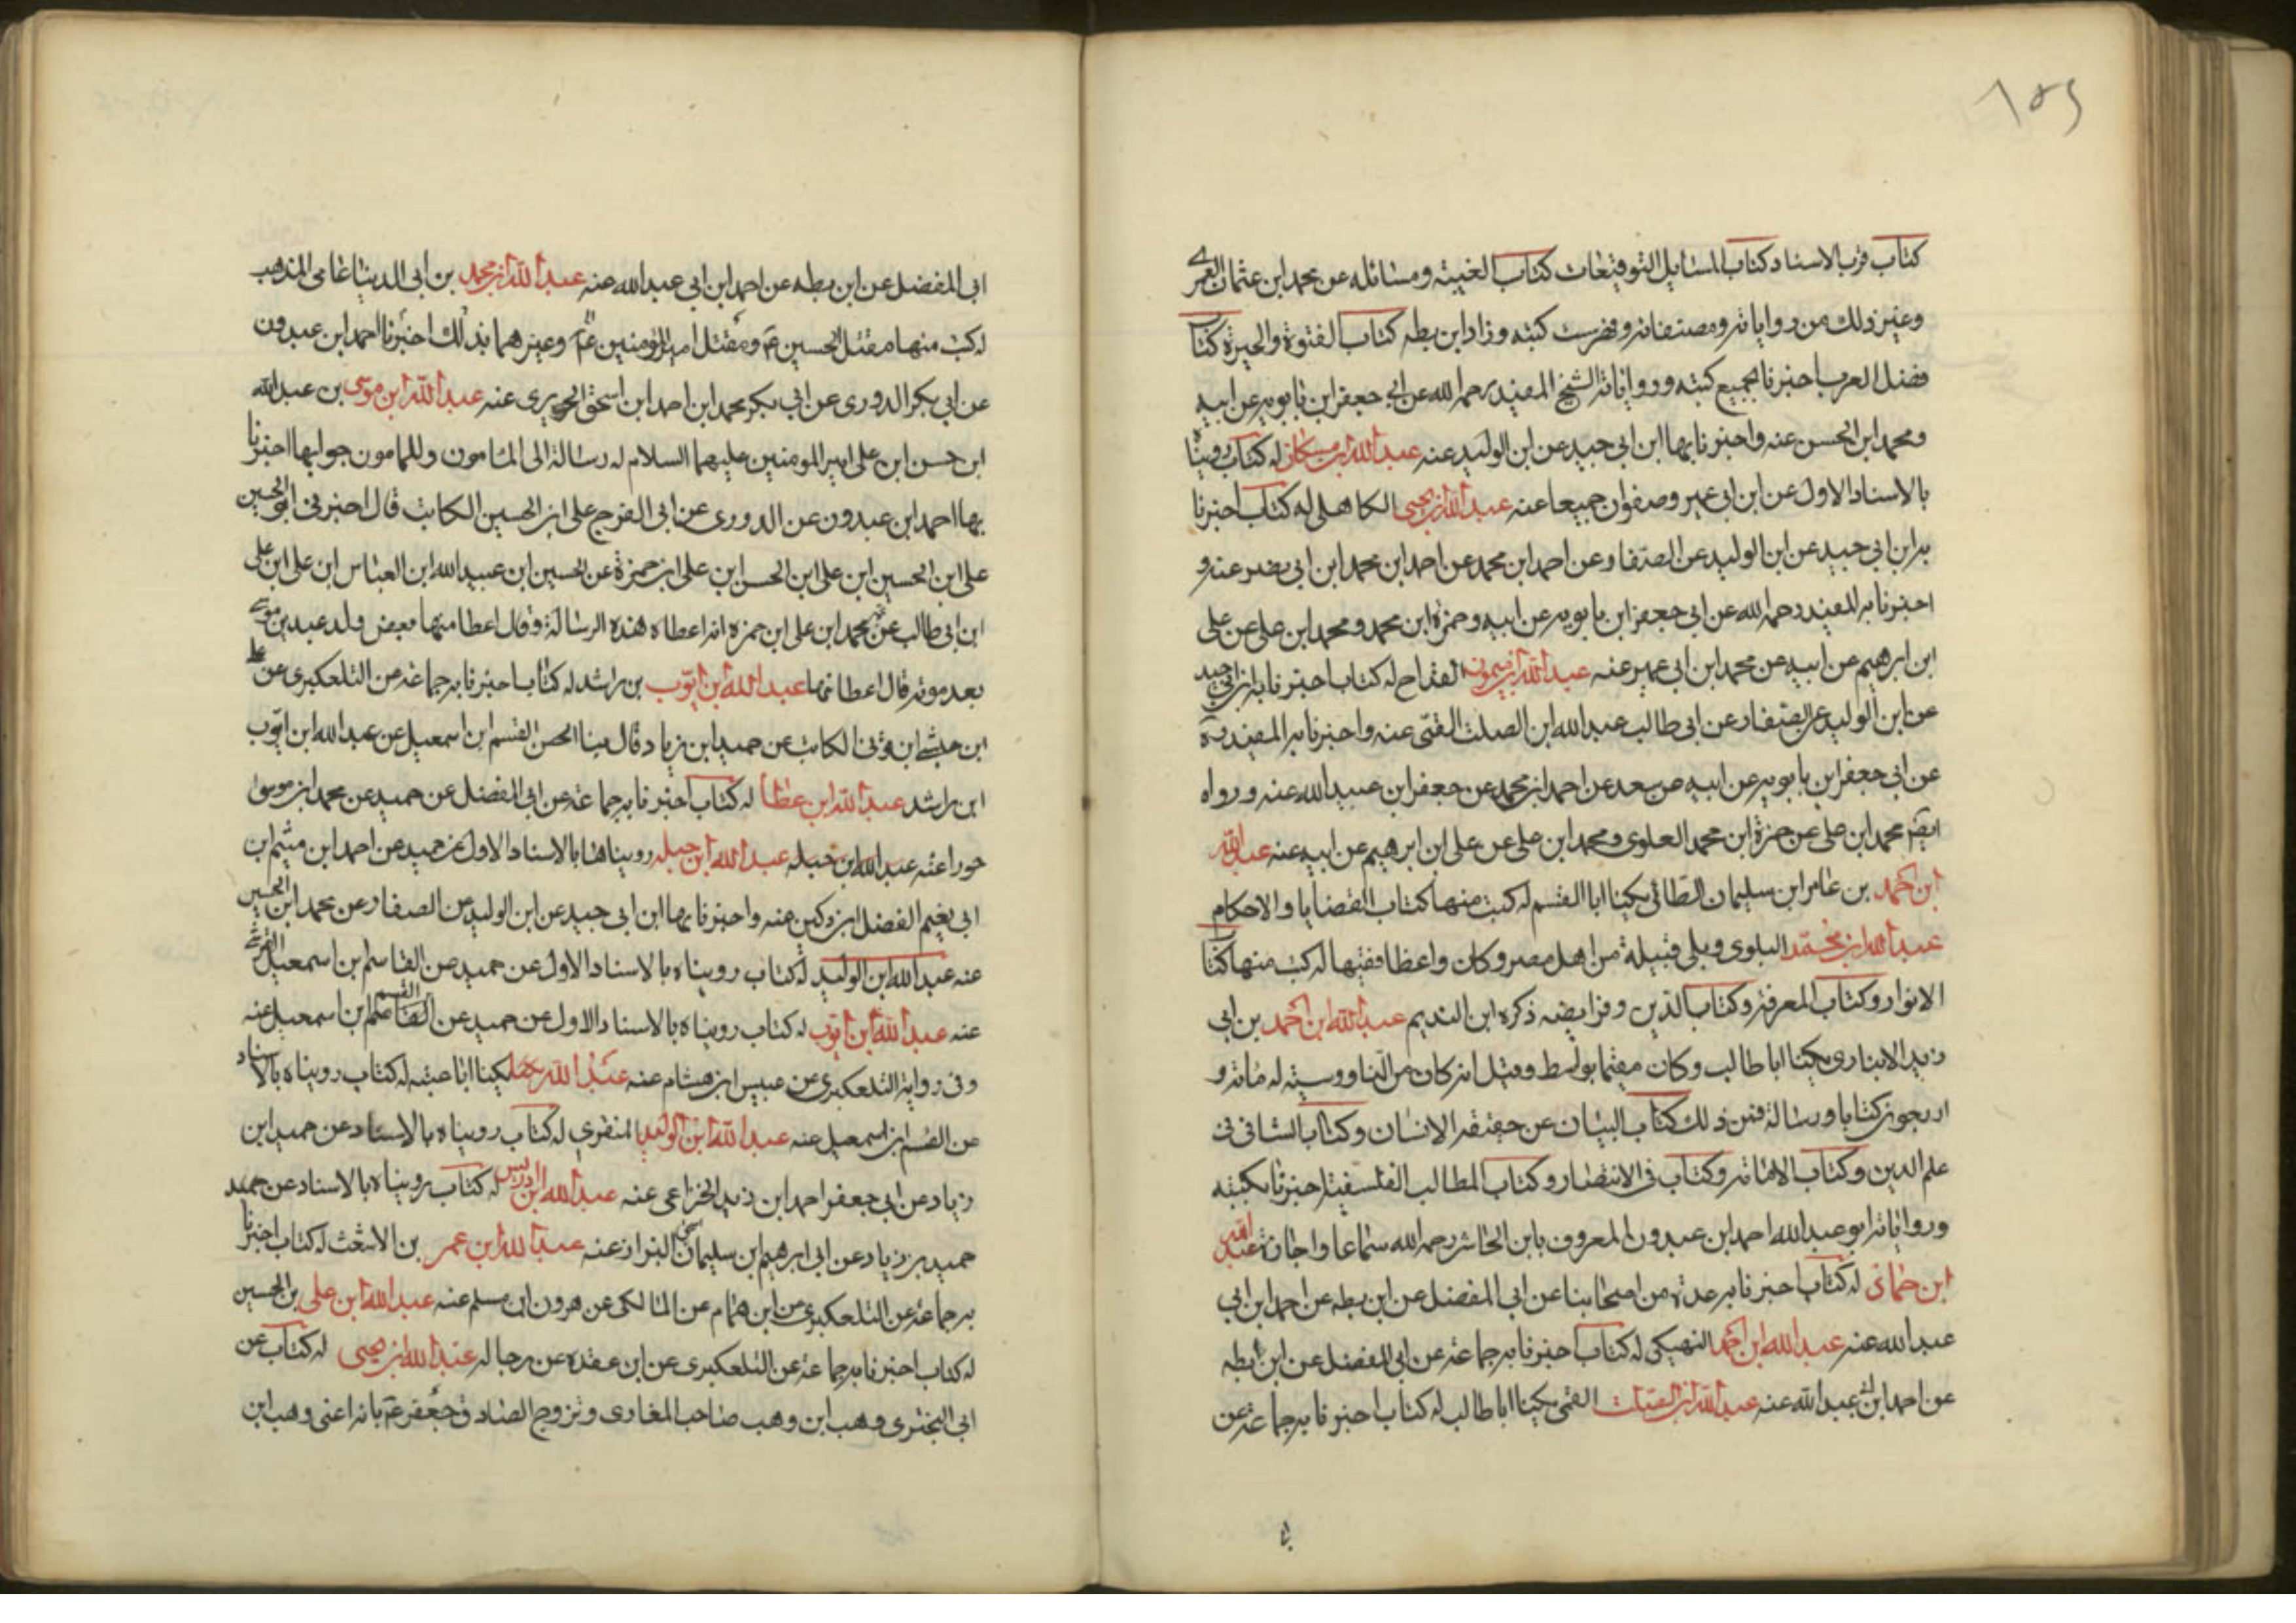 ١٥٩
كتاب قرب الاسناد كتاب المسايل التوقيعات كتاب الغيبة ومسائله عن محمد ابن عثمان العمرى
وغير ذلك من رواياته ومصنفاته وفهرست كتبه وزاد ابن بطه كتاب الفتوة والحيرة كتاب
فضل العرب اخبرنا بجميع كتبه ورواياته الشيخ المفيد رحمه الله عن ابى جعفر ابن بابويه عن ابيه
ومحمد ابن الحسن عنه واخبرنا بها ابن ابى جيد عن ابن الوليد عنه عبد الله ابن مسكان له كتاب روينا
بالاسناد الاول عن ابن ابى عمير وصفوان جميعا عنه عبد الله ابن يحيى الكاهلى له كتاب اخبرنا
به ابن ابى جيد عن ابن الوليد عن الصفار عن احمد ابن محمد عن احمد ابن محمد ابن ابى نصر عنه و
اخبرنا به المفيد رحمه الله عن ابى جعفر ابن بابويه عن ابيه وحمزة ابن محمد ومحمد ابن على عن على
ابن ابرهيم عن ابيه عن محمد ابن ابى عمير عنه عبد الله ابن ميمون القداح له كتاب اخبرنا به ابن ابى جيد
عن ابن الوليد عن الصفار عن ابى طالب عبد الله ابن الصلت القمى عنه واخبرنا به المفيد ره
عن ابى جعفر ابن بابويه عن ابيه عن سعد عن احمد ابن محمد عن جعفر ابن عبيد الله عنه ورواه
ايضا محمد ابن على عن حمزة ابن محمد العلوى ومحمد ابن على عن على ابن ابرهيم عن ابيه عنه عبد الله
ابن احمد بن عامر ابن سليمان الطائى يكينا ابا القسم له كتب منها كتاب القضايا والاحكام
عبد الله ابن محمد البلوى وبلى قبيلة من اهل مصر وكان واعظا فقيها له كتب منها كتاب
الانوار وكتاب المعرفة وكتاب الدين وفرايضه ذكره ابن النديم عبد الله ابن احمد بن ابى
زيد الانبارى يكينا ابا طالب وكان مقيما بواسط وقيل انه كان من الناووسية له مائة و
اربعون كتابا ورسالة فمن ذلك كتاب البيان عن حقيقة الانسان وكتاب الشافى فى
علم الدين وكتاب الامامة وكتاب فى الانتصار وكتاب المطالب الفلسفية اخبرنا بكتبه
ورواياته ابو عبد الله احمد ابن عبدون المعروف بابن الحاشر رحمه الله سماعا واجازة عبد الله
ابن حماد له كتاب اخبرنا به عدة من اصحابنا عن ابى المفضل عن ابن بطه عن احمد ابن ابى
عبد الله عنه عبد الله ابن احمد النهيكى له كتاب اخبرنا به جماعة عن ابى المفضل عن ابن بطه
عن احمد ابن ابى عبد الله عنه عبد الله ابن الصلت القمى يكينا ابا طالب له كتاب اخبرنا به جماعة عن
ابى المفضل عن ابن بطه عن احمد ابن ابى عبد الله عنه عبد الله ابن محمد بن ابى الدينا عامى المذهب
له كتب منها مقتل الحسين ع ومقتل امير المؤمنين ع وغيرهما بذلك اخبرنا احمد ابن عبدون
عن ابى بكر الدورى عن ابى بكر محمد ابن احمد ابن اسحق الحريرى عنه عبد الله ابن موسى بن عبد الله
ابن حسن ابن على امير المومنين عليهما السلام له رسالة الى المامون وللمامون جوابها اخبرنا
بها احمد ابن عبدون عن الدورى عن ابى الفرج على ابن الحسين الكاتب قال اخبرنى ابو الحسين
على ابن الحسين ابن على ابن الحسن ابن على ابن حمزة عن الحسين ابن عبيد الله ابن العباس ابن على ابن على
ابن ابى طالب عن محمد ابن على ابن حمزه انه اعطاه هذه الرسالة وقال اعطا منها بعض ولد عبد بن موسى
بعد موته قال اعطانها عبد الله ابن ايوب بن راشد له كتاب اخبرنا به جماعة عن التلعكبرى عن على
ابن حبشى ابن قونى الكاتب عن حميد ابن زياد قال بينا الحسن القسم ابن اسمعيل عن عبد الله ابن ايوب
ابن راشد عبد الله ابن عطا له كتاب اخبرنا به جماعة عن ابى المفضل عن حميد عن محمد ابن موسى
خورا عنه عبد الله ابن جبله عبد الله ابن جبله رويناها بالاسناد الاول عن حميد عن احمد ابن ميثم بن
ابى نعيم الفضل ابن دكين عنه واخبرنا بها ابن ابى جيد عن ابن الوليد عن الصفار عن محمد ابن الحسين
عنه عبد الله ابن الوليد له كتاب رويناه بالاسناد الاول عن حميد عن القاسم بن اسمعيل القرشى
عنه عبد الله ابن ايوب له كتاب رويناه بالاسناد الاول عن حميد عن القسم بن اسمعيل عنه
وفى رواية التلعكبرى عن عبيس ابن هشام عنه عبد الله يكينا ابا عتبه له كتاب رويناه بالاسناد
عن القسم ابن اسمعيل عنه عبد الله ابن الوليد المنقرى له كتاب رويناه بالاسناد عن حميد ابن
زياد عن ابى جعفر احمد ابن زيد الخزاعى عنه عبد الله ابن ادريس له كتاب رويناه بالاسناد عن حميد
حميد بن زياد عن ابى ابرهيم ابن سليمان البزاز عنه عبد الله ابن عمر بن الاشعث له كتاب اخبرنا
به جماعة عن التلعكبرى عن ابن همام عن المالكى عن هرون ابن مسلم عنه عبد الله ابن على بن الحسين
له كتاب اخبرنا به جماعة عن التلعكبرى عن ابن عقده عن رجاله عبد الله ابن يحيى له كتاب عن
ابى البخترى وهب ابن وهب صاحب المغازى وتزوج الصادق جعفر ع بانه اعنى وهب ابن